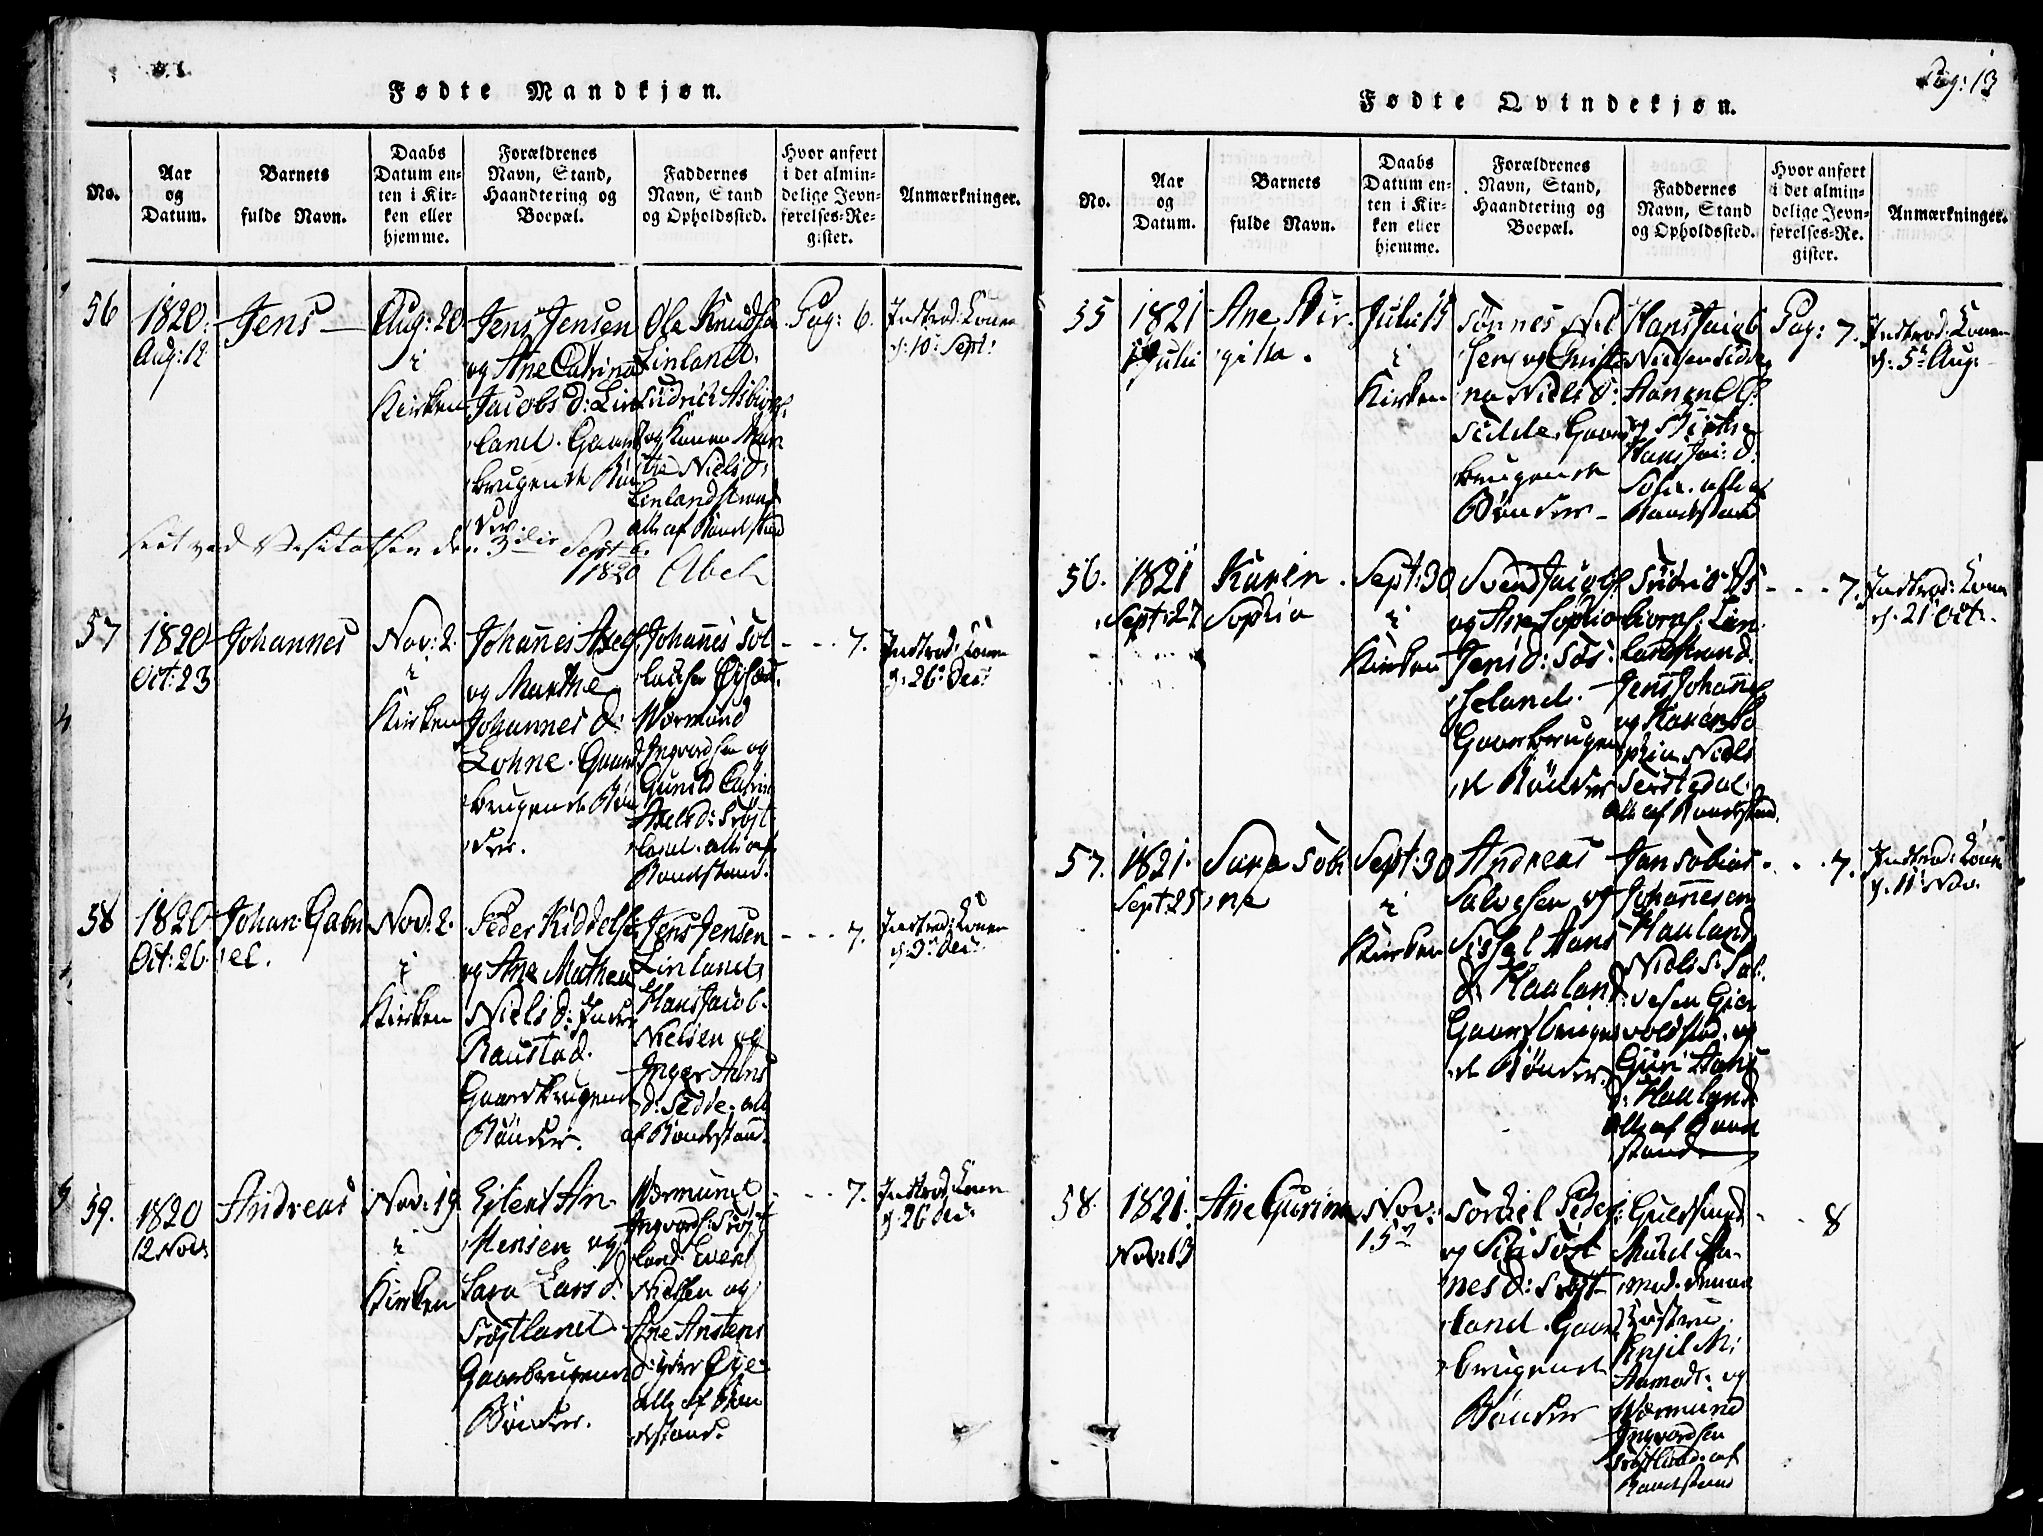 Fødte Mandkjøn.
No.
Aar
og
Datum.
Barnets
fulde Navn.
Daabs
Datum en-
ten i Kir-
ken eller
hjemme.
Forældrenes
Navn, Stand,
Haandtering og
Boepæl.
Faddernes
Navn, Stand
og Opholdssted.
Hvor anfert
i det almin-
delige Jevn-
førelses-Re-
gister.
Anmærkninger.
56
1820.
Aug: 12
Jens
Aug: 20
i
Kirken
Jens Jensen
og Ane Catrina
Jacobs d: Lin
land. Gaard
brugende Bøn
der.
Ole Knudsen
Linland.
Asbiørs:
og Konen Mar
the Niels d:
Linlandstrand
alle af Bondestand
Pag: 6.
Introd: Konen
d: 10 Sept:
seet ved Visitatsen den 3die Sept
1820
57
1820
Oct: 23
Johannes
Nov: 2.
i
Kirken
Johannes Axels:
og Marthe
Johannes d:
Lohne. Gaard
brugende Bøn
der.
Johannes Tol
lacksen
Wormund
Ingvardsen og
Gunild Catrine
Axels d: Trøjt
land. alle af
Bondestand.
- - - 7.
Introd: Konen
d: 26 Dec:
58
1820
Oct: 26.
Johan Gabri
el.
Nov: 2.
i
Kirken
Peder Kiddelse
og Ane Mathea
Niels d: Indre
Raustad.
Gaardbrugende
Bønder.
Jens Jensen
Linland,
Hans Jacob
Nielsen og
Inger Hans
d: Tedde. alle
af Bondestand.
- - - 7.
Introd: Konen
d: 3 Dec:
59.
1820
12 Nov:
Andreas
Nov: 19.
i
Kirken
Eilert An
stensen og
Sara Lars d.
Trøjtland
Gaardbrugende
Bønder.
Wormund
Ingvards: Trøjt
land. Evert
Nielsen og
Ane Anstens
d: Øye
alle af Bon
destand.
- - - 7.
Introd: Konen
d: 26 Dec:
Pag: 13
Fødte Qvindekjøn.
No.
Aar
og
Datum.
Barnets
fulde Navn.
Daabs
Datum en-
ten i Kir-
ken eller
hjemme.
Forældrenes
Navn, Stand,
Haandtering og
Boepæl.
Faddernes
Navn, Stand
og Opholdssted.
Hvor anfert
i det almin-
delige Jevn-
førelses-Re-
gister.
Anmærkninger.
55
1821
Juli
Ane Bir
gitta.
Juli: 15
i
Kirken
Tønnes Niel
sen og Christi
na Niels d:
Tedde. Gaard
brugende
Bønder
Hans Jacob
Nielsen Tedde
og Birthe
Hans Jac: d:
alle af
Bondestand
Pag: 7.
Introd: Konen
d: 5 Aug:
56.
1821
Sept: 27
Karen
Sophia
Sept: 30
i
Kirken
Svend Jacobs:
og Ane Sophia
Jens d: Søs
Gaardbrugen
de Bønder
As
biørns: Lin
landstrand.
Jens Johann
og Karen So
phia Niels
alle af Bondestand.
- - - 7.
Introd: Konen
d: 21 Oct.
57.
1821.
Sept: 25
Sara Tobi
ne
Sept: 30
i
Kirken
Andreas
Salvesen og
Sissel Hans
d: Haaland
Gaardbrugen
de Bønder.
Jan Tobias
Johannesen
Haaland,
Niels Sal
vesen Gier
voldstad. og
Guri Hans
d: Haaland.
alle af Bonde
stand
- - - 7.
Introd: Konen
d: 11 Nov.
58.
1821.
Nov: 13
Ane Gurina
Nov:
15
Torkiel Peder:
og Siri Tøst
nes d: Trøjt
land. Gaard
brugende
Bønder
og
Wormund
Ingvardsen
Trøjtland. af
Bondestand
- - 8